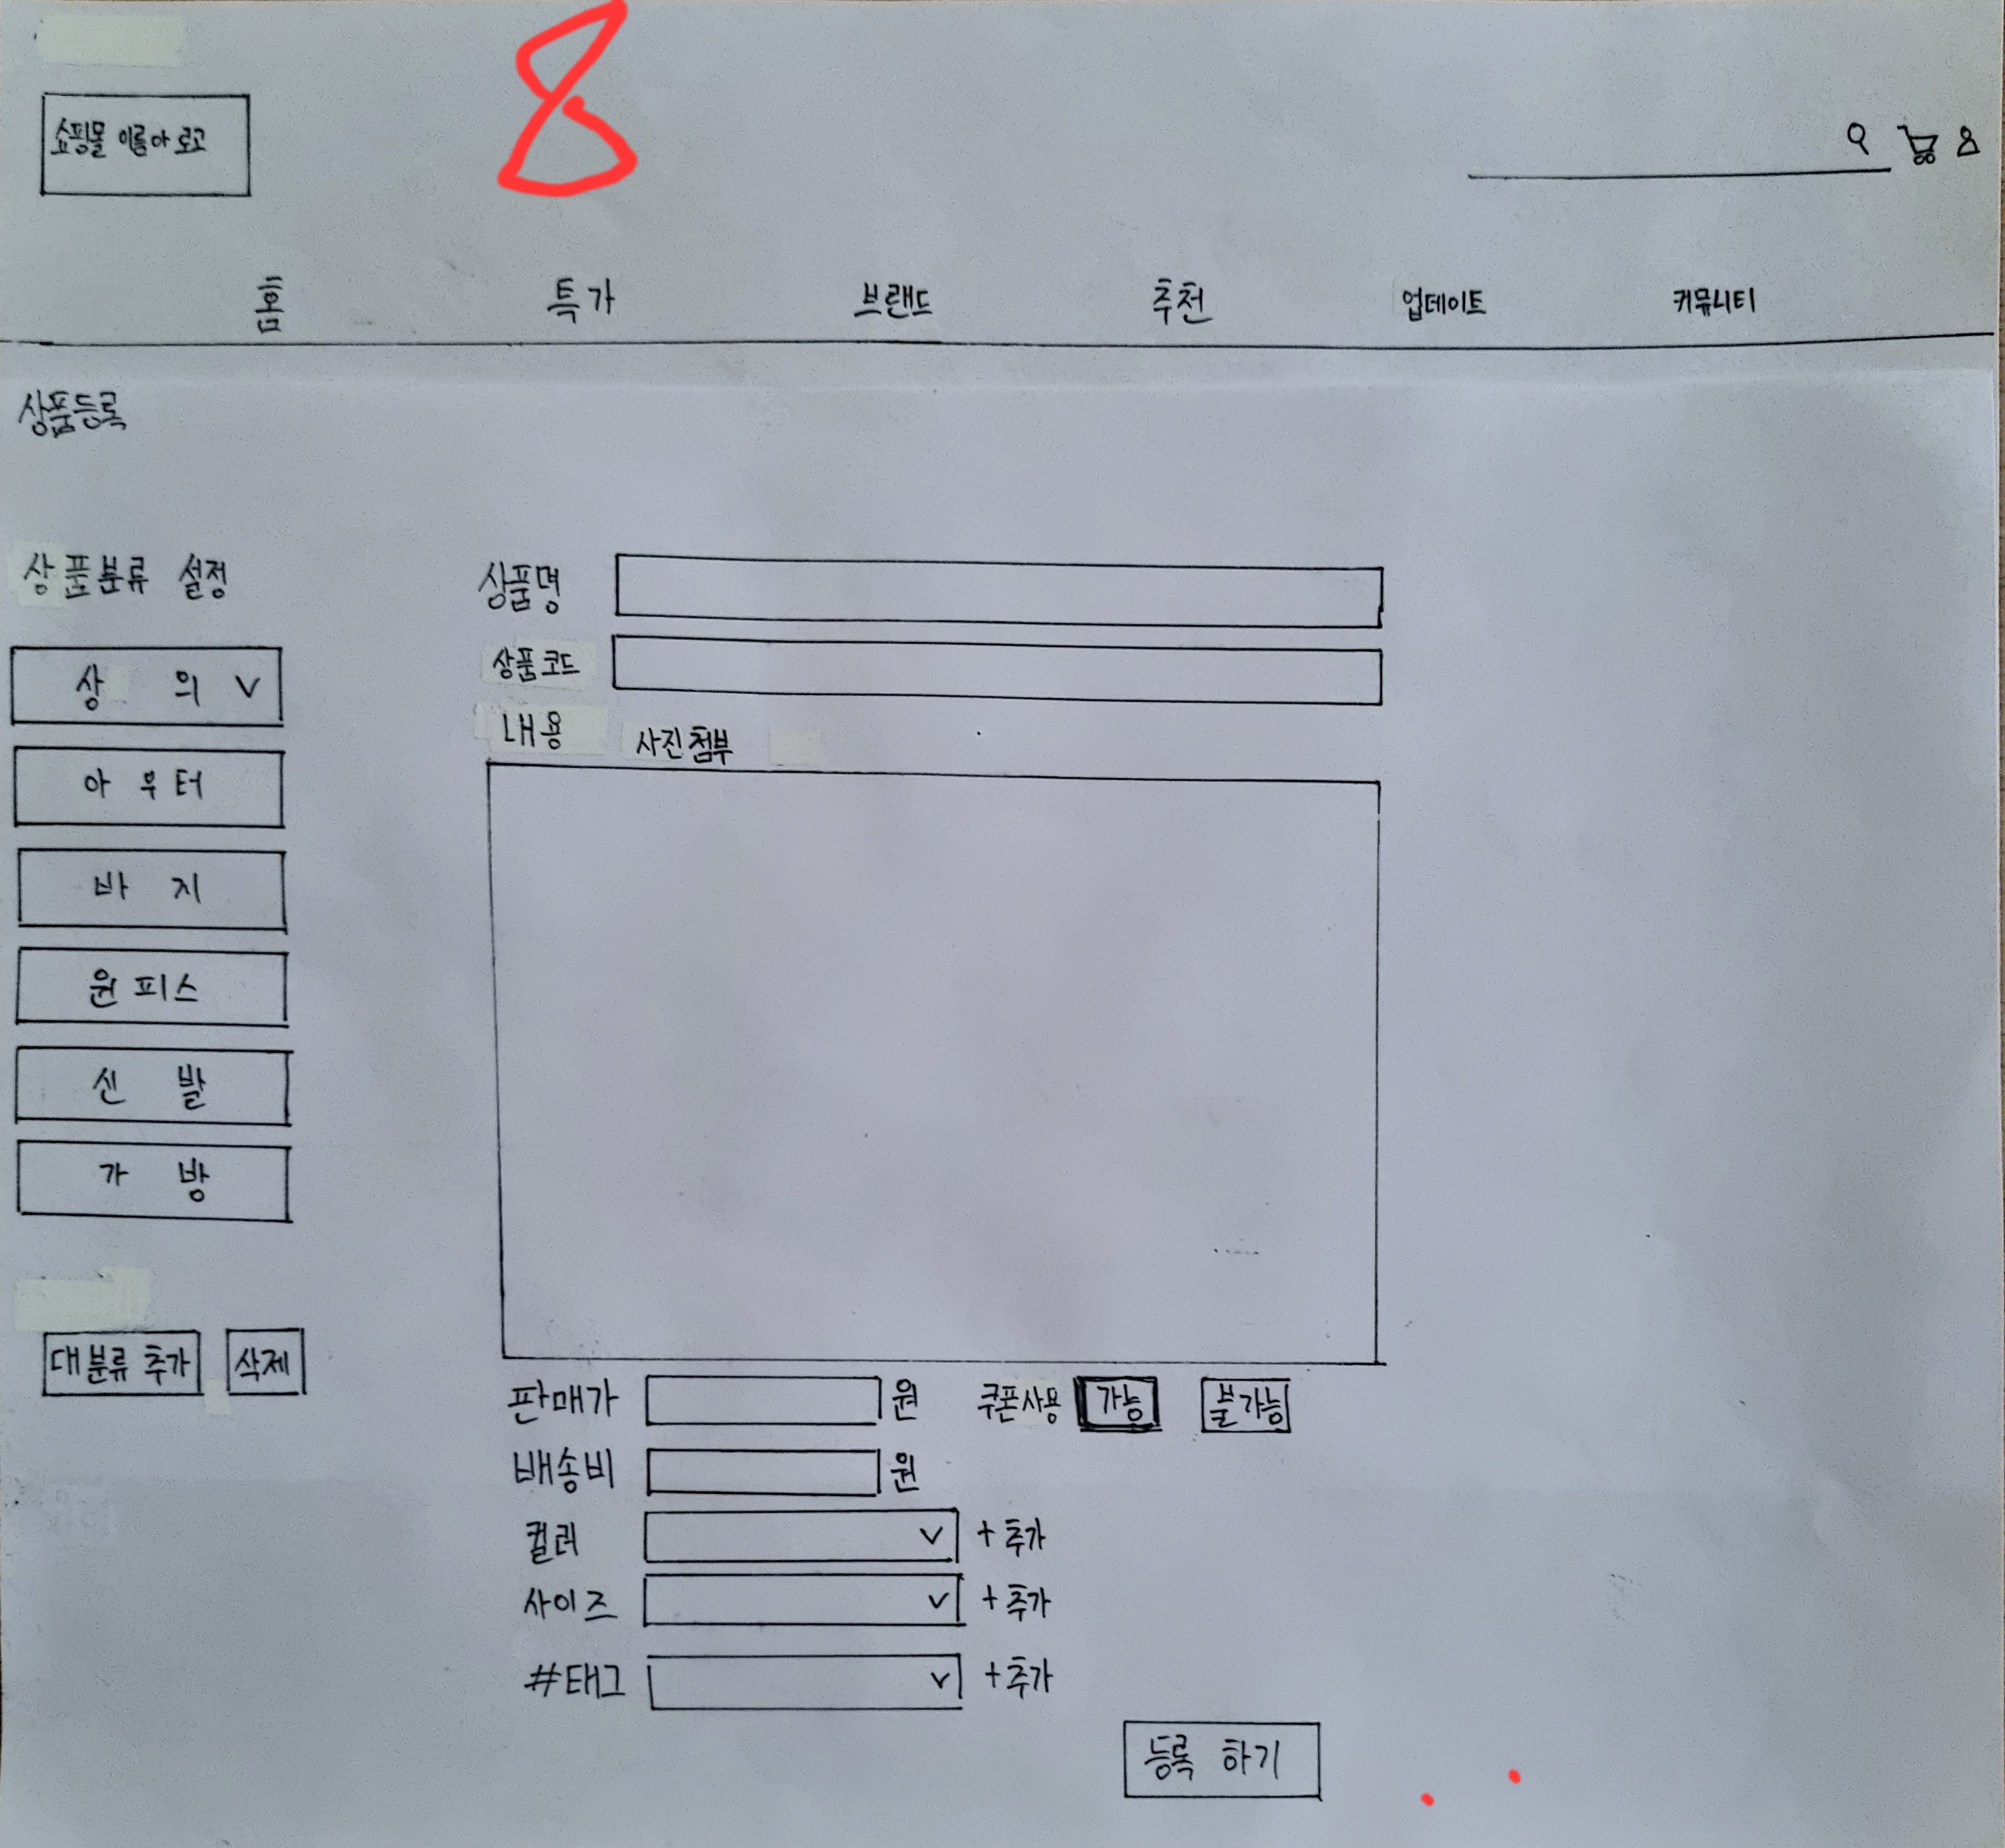 8
쇼핑몰 이름아 로고
홈 특가 브랜드 추천 업데이트 커뮤니티
상품등록
상품분류 설정
상의 V
아우터
바지
원피스
신발
가방
대분류 추가 삭제
상품명
상품코드
내용 사진첨부
판매가 원 쿠폰사용 가능 불가능
배송비 원
컬러 V + 추가
사이즈 V + 추가
#태그 V + 추가
등록 하기